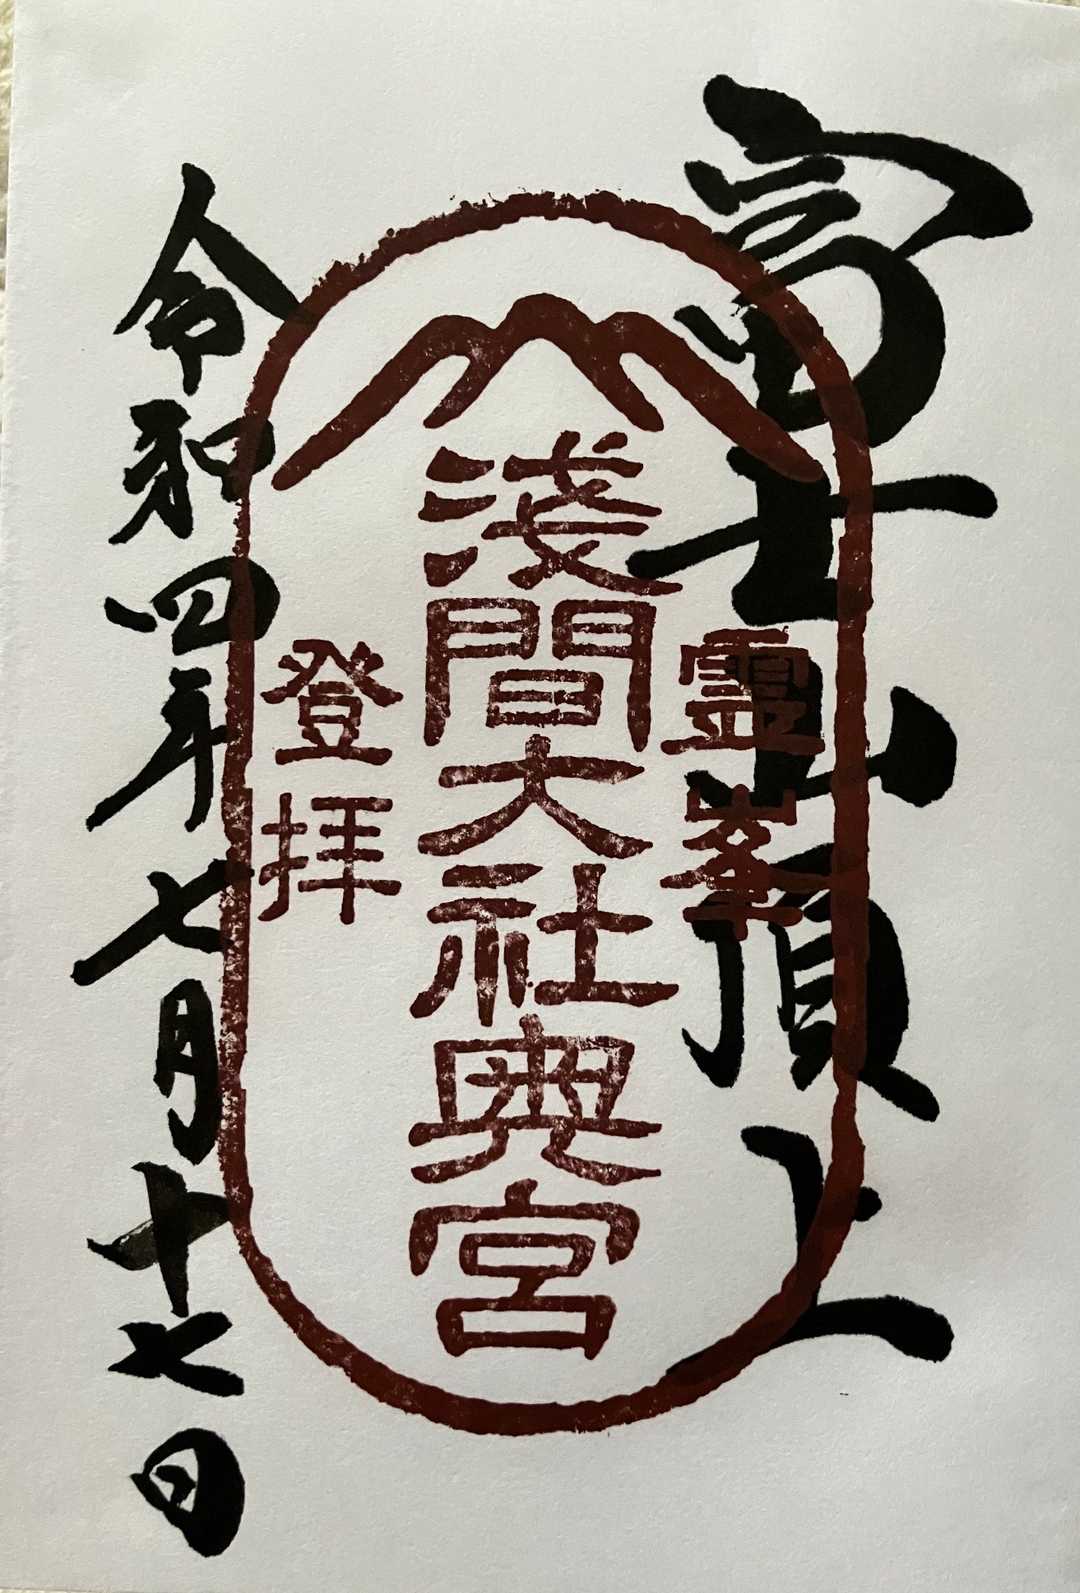 富士山頂上
霊峯
淺間大社奥宮
登拝
令和四年七月十七日